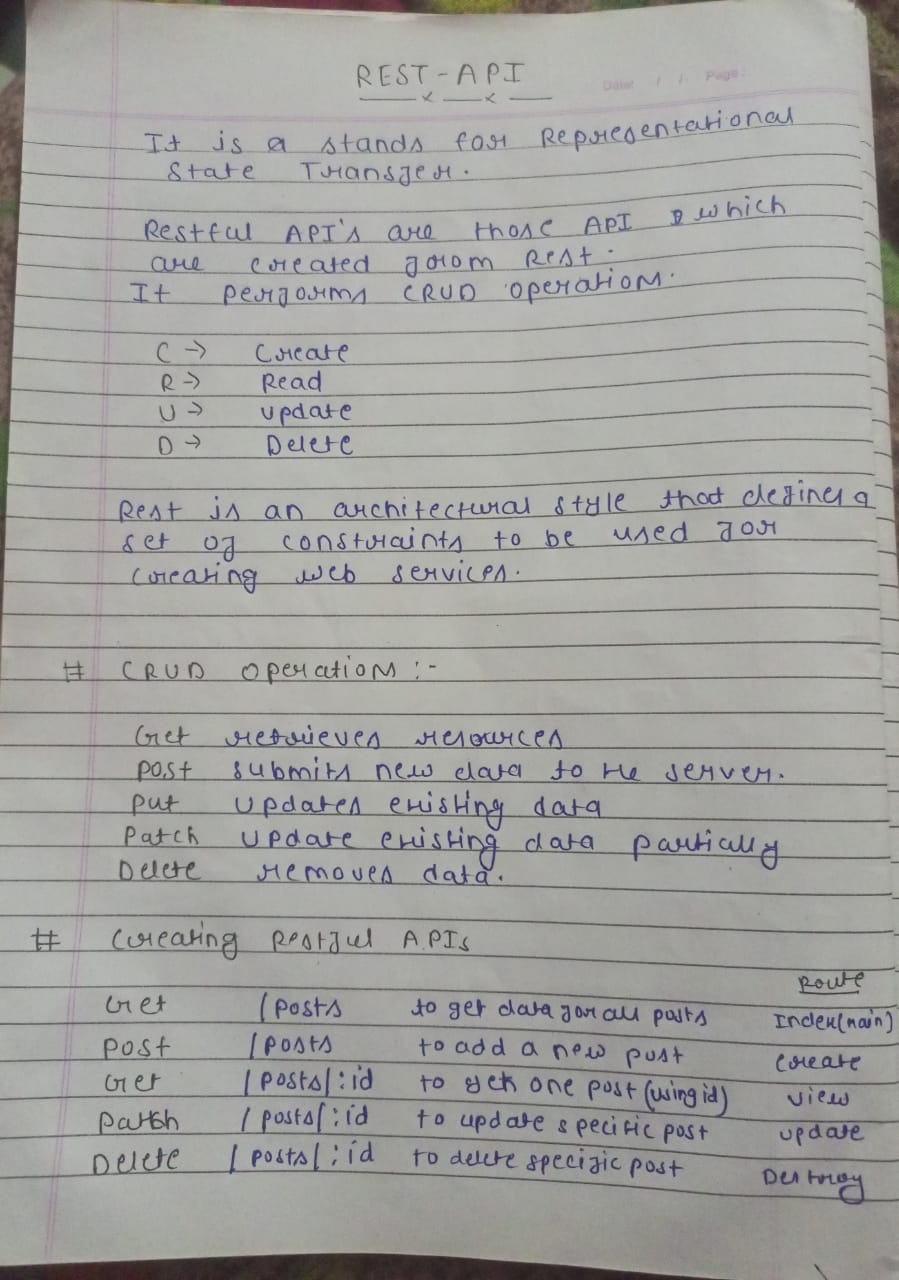 REST-API
Date: / / Page:
It is a stands for Representational
State Transfer.
Restful API's are those API which
are created from Rest.
It performs CRUD operations.
C → Create
R → Read
U → update
D → Delete
Rest is an architectural style that defines a
set of constraints to be used for
creating web services.
# CRUD operations :-
Get retrieves resources
post submits new data to the server.
put updates existing data
Patch update existing data partially
Delete removes data.
# Creating Restful APIs
Route
Get /posts to get data for all posts Index(main)
post /posts to add a new post create
Get /posts/:id to get one post (using id) view
patch /posts/:id to update specific post update
Delete /posts/:id to delete specific post Destroy